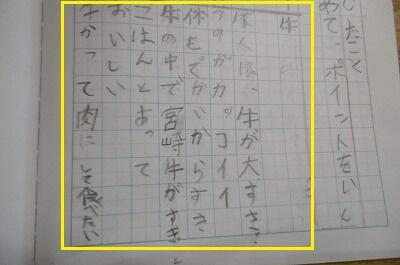 したこと
めて、ポイントをいく
牛
ぼくは、牛が大すき。
つのがカッコイイ
体もでかいからすき
牛の中で宮崎牛がすき
ごはんとあって
おいしい
牛かって肉にして食べたい